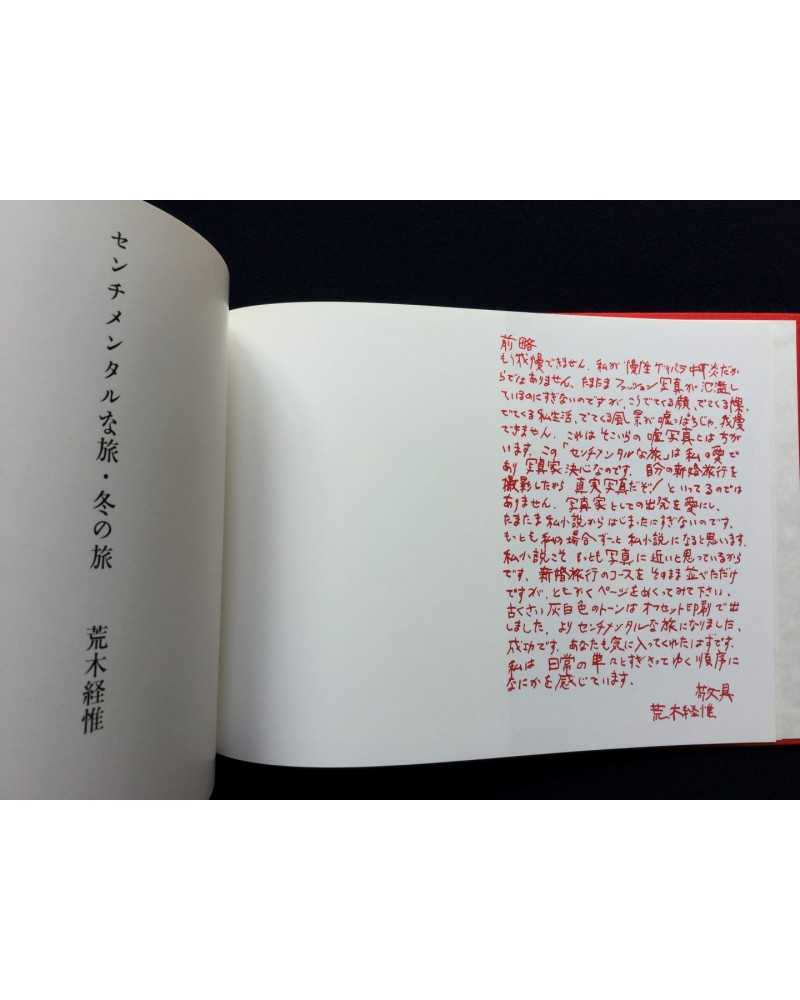 センチメンタルな旅・冬の旅
荒木経惟
前略
もう我慢できません。私が慢性ゲリバラ中耳炎だか
らではありません。たまたまファッション写真が氾濫し
ているのにすぎないのですが、こうでてくる顔、でてくる裸、
でてくる私生活、でてくる風景が嘘っぱちじゃ、我慢
できません。これはそこいらの嘘写真とはちが
います。この「センチメンタルな旅」は私の愛で
あり写真家決心なのです。自分の新婚旅行を
撮影したから真実写真だぞ!といってるのでは
ありません。写真家としての出発を愛にし、
たまたま私小説からはじまったにすぎないのです。
もっとも私の場合ずーっと私小説になると思います。
私小説こそもっとも写真に近いと思っているから
です。新婚旅行のコースをそのまま並べただけ
ですが、とにかくページをめくってみて下さい。
古くさい灰白色のトーンはオフセット印刷で出
しました。よりセンチメンタルな旅になりました。
成功です。あなたも気に入ってくれたはずです。
私は日常の単々とすぎさってゆく順序に
なにかを感じています。
敬具
荒木経惟